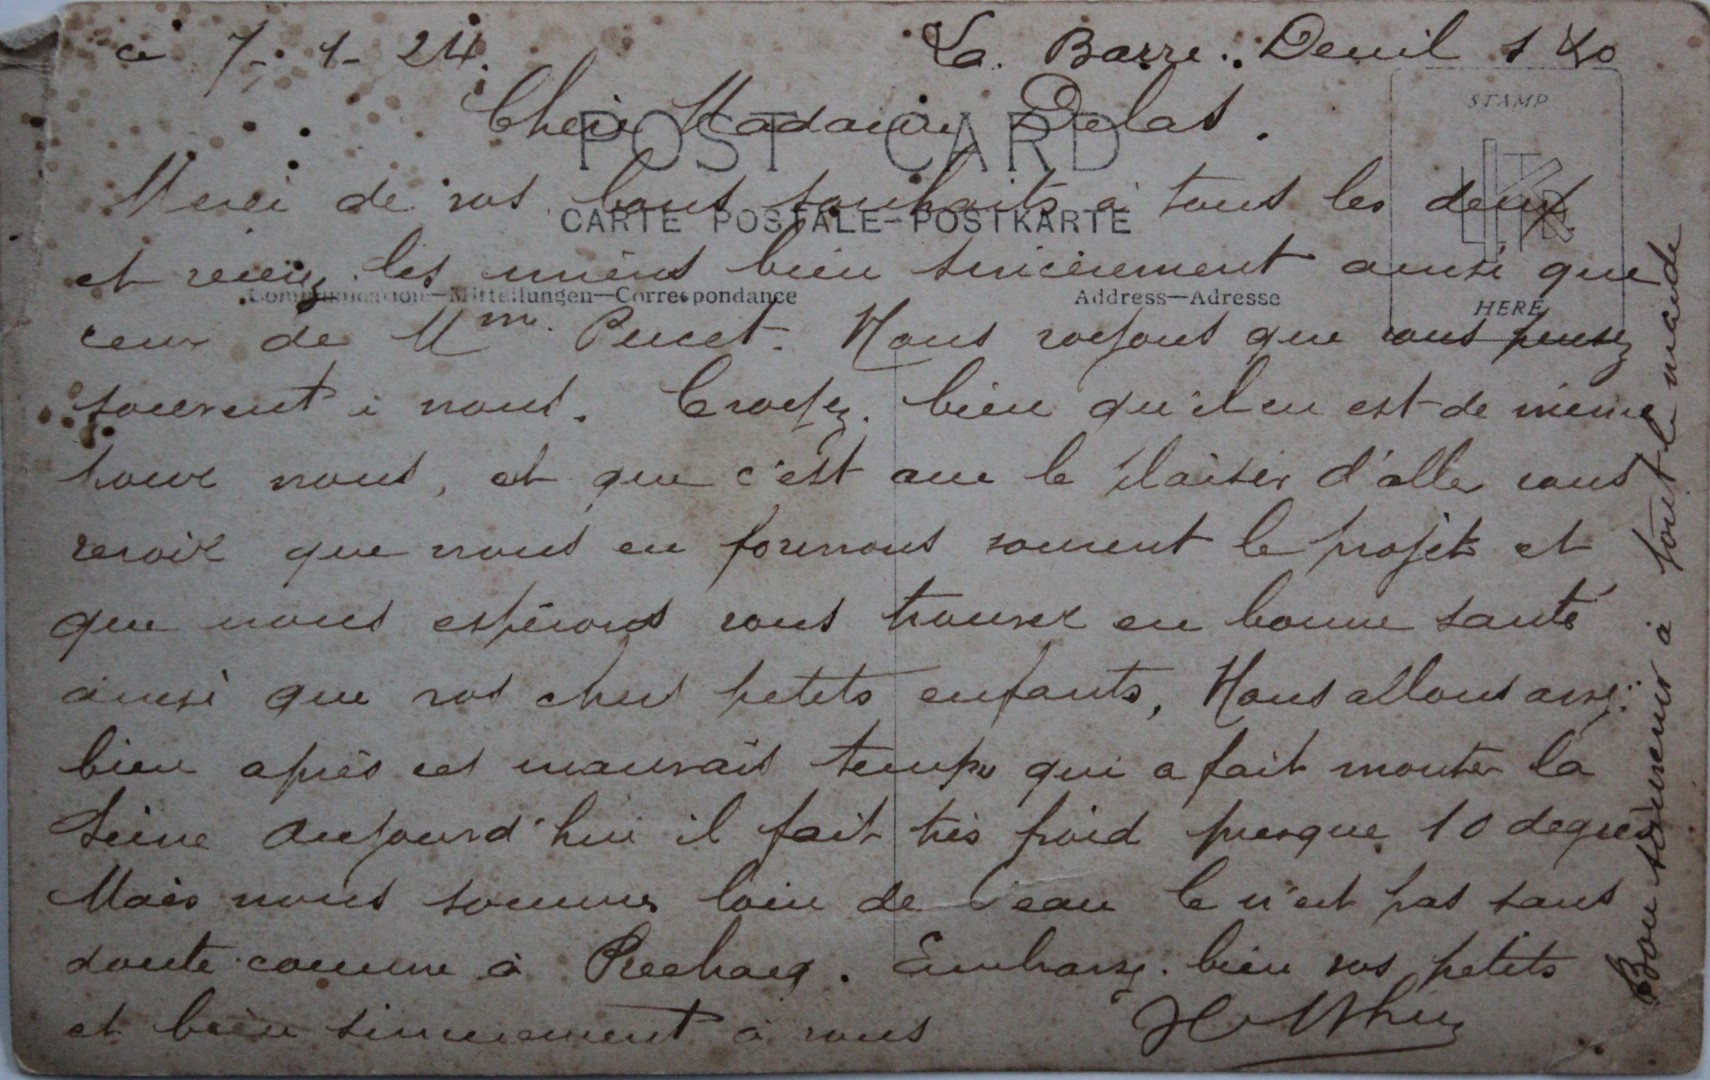 ce 7-1-24. La Barre. Deuil S &O
Chère Madame Delas.
POST CARD
STAMP
HERE
Merci de vos bons souhaits à tous les deux
CARTE POSTALE-POSTKARTE
et recevez les miens bien sincèrement ainsi que
Communication—Mitteilungen—Correspondance
Address—Adresse
ceux de Mme. Pucet. Nous voyons que vous pensez
souvent à nous. Croyez bien qu'il en est de même
pour nous, et que c'est avec le plaisir d'aller vous
revoir que nous en formons souvent le projet et
que nous espérons vous trouver en bonne santé
ainsi que vos chers petits enfants, Nous allons assez
bien après ces mauvais temps qui a fait monter la
Seine Aujourd'hui il fait très froid presque 10 degrés
Mais nous sommes loin de l'eau Ce n'est pas sans
doute comme à Prechacq. Embrassez bien vos petits
et bien sincèrement à vous
Bon souvenir à tout le monde